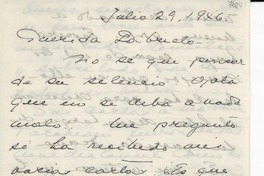 Julio 29, 1946
Querida Da
No se que pensar
de su silencio Ojalá
que no se deba a nada
malo. Me pregunto
si ha recibido mis
varias cartas. Es que